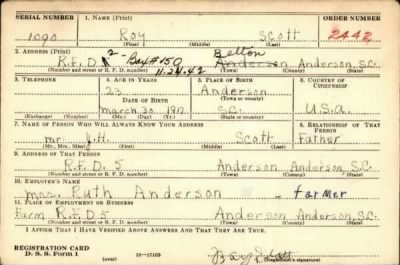 SERIAL NUMBER 1. NAME (Print) ORDER NUMBER
1090 Roy Scott 2442
(First) (Middle) (Last)
2. ADDRESS (Print) 2- Belton
R.F.D. Box #150 Anderson Anderson, S.C.
11-24-42
(Number and street or R. F. D. number) (Town) (County) (State)
3. TELEPHONE 4. AGE IN YEARS 5. PLACE OF BIRTH 6. COUNTRY OF CITIZENSHIP
23 Anderson
DATE OF BIRTH (Town or county)
March 30 S.C. U.S.a.
(Exchange) (Number) (Mo.) (Day) (Yr.) (State or country)
7. NAME OF PERSON WHO WILL ALWAYS KNOW YOUR ADDRESS 8. RELATIONSHIP OF THAT PERSON
mr. J.H. Scott Father
(Mr., Mrs., Miss) (First) (Middle) (Last)
9. ADDRESS OF THAT PERSON
R.F.D. 5 Anderson Anderson S.C.
(Number and street or R. F. D. number) (Town) (County) (State)
10. EMPLOYER'S NAME
mrs. Ruth Anderson - farmer
11. PLACE OF EMPLOYMENT OR BUSINESS
Farm R.F.D 5 Anderson Anderson, S.C.
(Number and street or R. F. D. number) (Town) (County) (State)
I AFFIRM THAT I HAVE VERIFIED ABOVE ANSWERS AND THAT THEY ARE TRUE.
REGISTRATION CARD
D. S. S. Form 1 (over) 16-17105 (Registrant's signature)